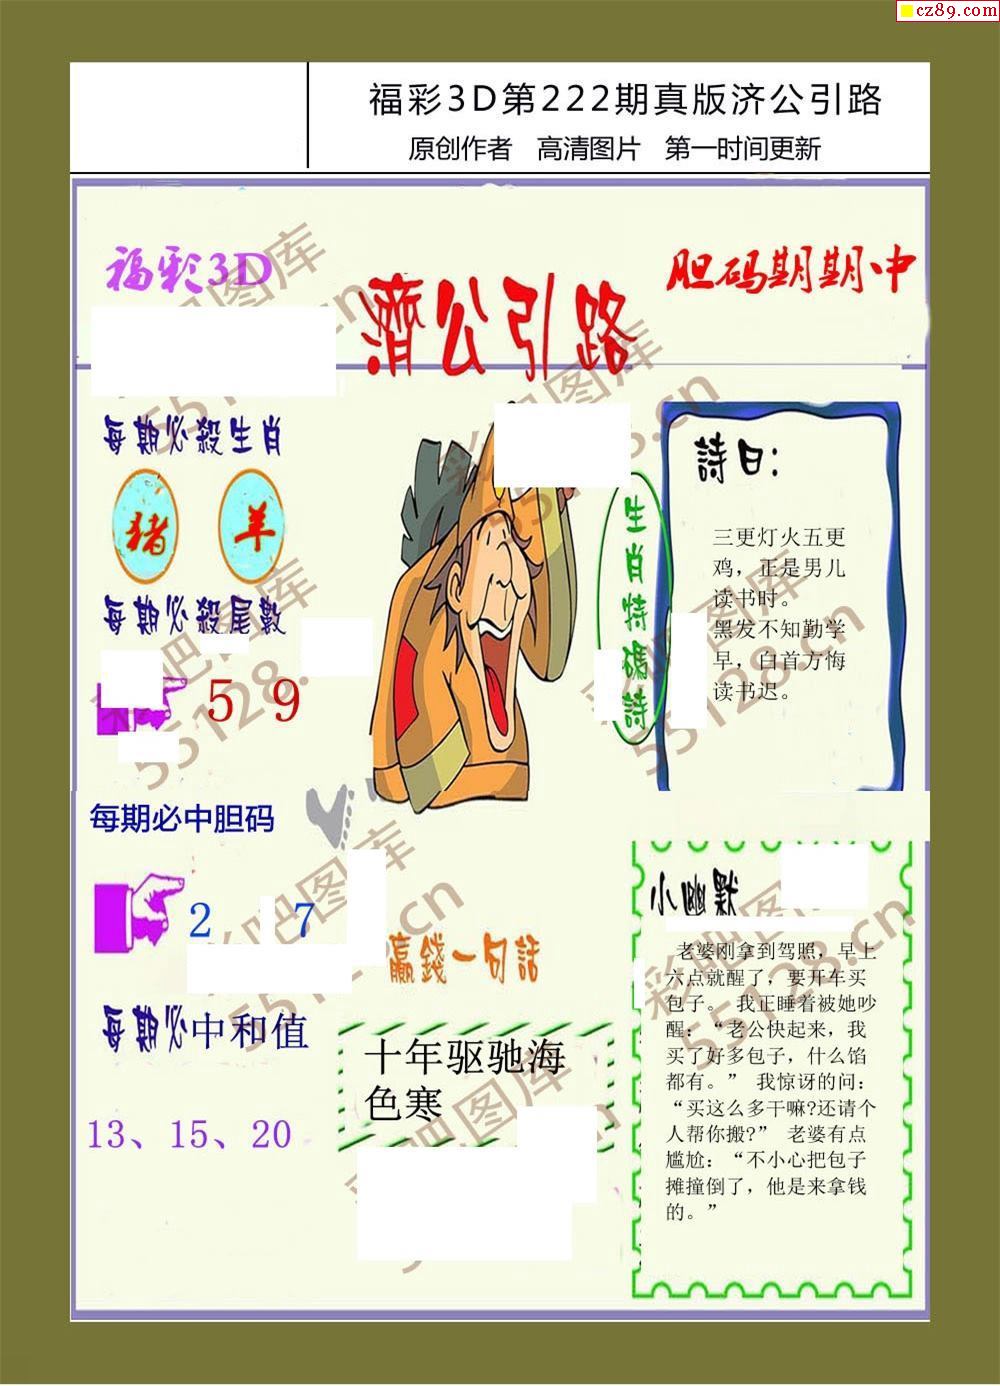 cz89.com
福彩3D第222期真版济公引路
原创作者 高清图片 第一时间更新
福彩3D
濟公引路
胆码期期中
每期必殺生肖
猪 羊
每期必殺尾數
5 9
每期必中胆码
2 7
每期必中和值
13、15、20
生肖特碼詩
詩曰：
三更灯火五更
鸡，正是男儿
读书时。
黑发不知勤学
早，白首方悔
读书迟。
赢錢一句話
十年驱驰海
色寒
小幽默
老婆刚拿到驾照，早上
六点就醒了，要开车买
包子。 我正睡着被她吵
醒：“老公快起来，我
买了好多包子，什么馅
都有。” 我惊讶的问：
“买这么多干嘛?还请个
人帮你搬?” 老婆有点
尴尬：“不小心把包子
摊撞倒了，他是来拿钱
的。”
彩吧图库
55128.cn